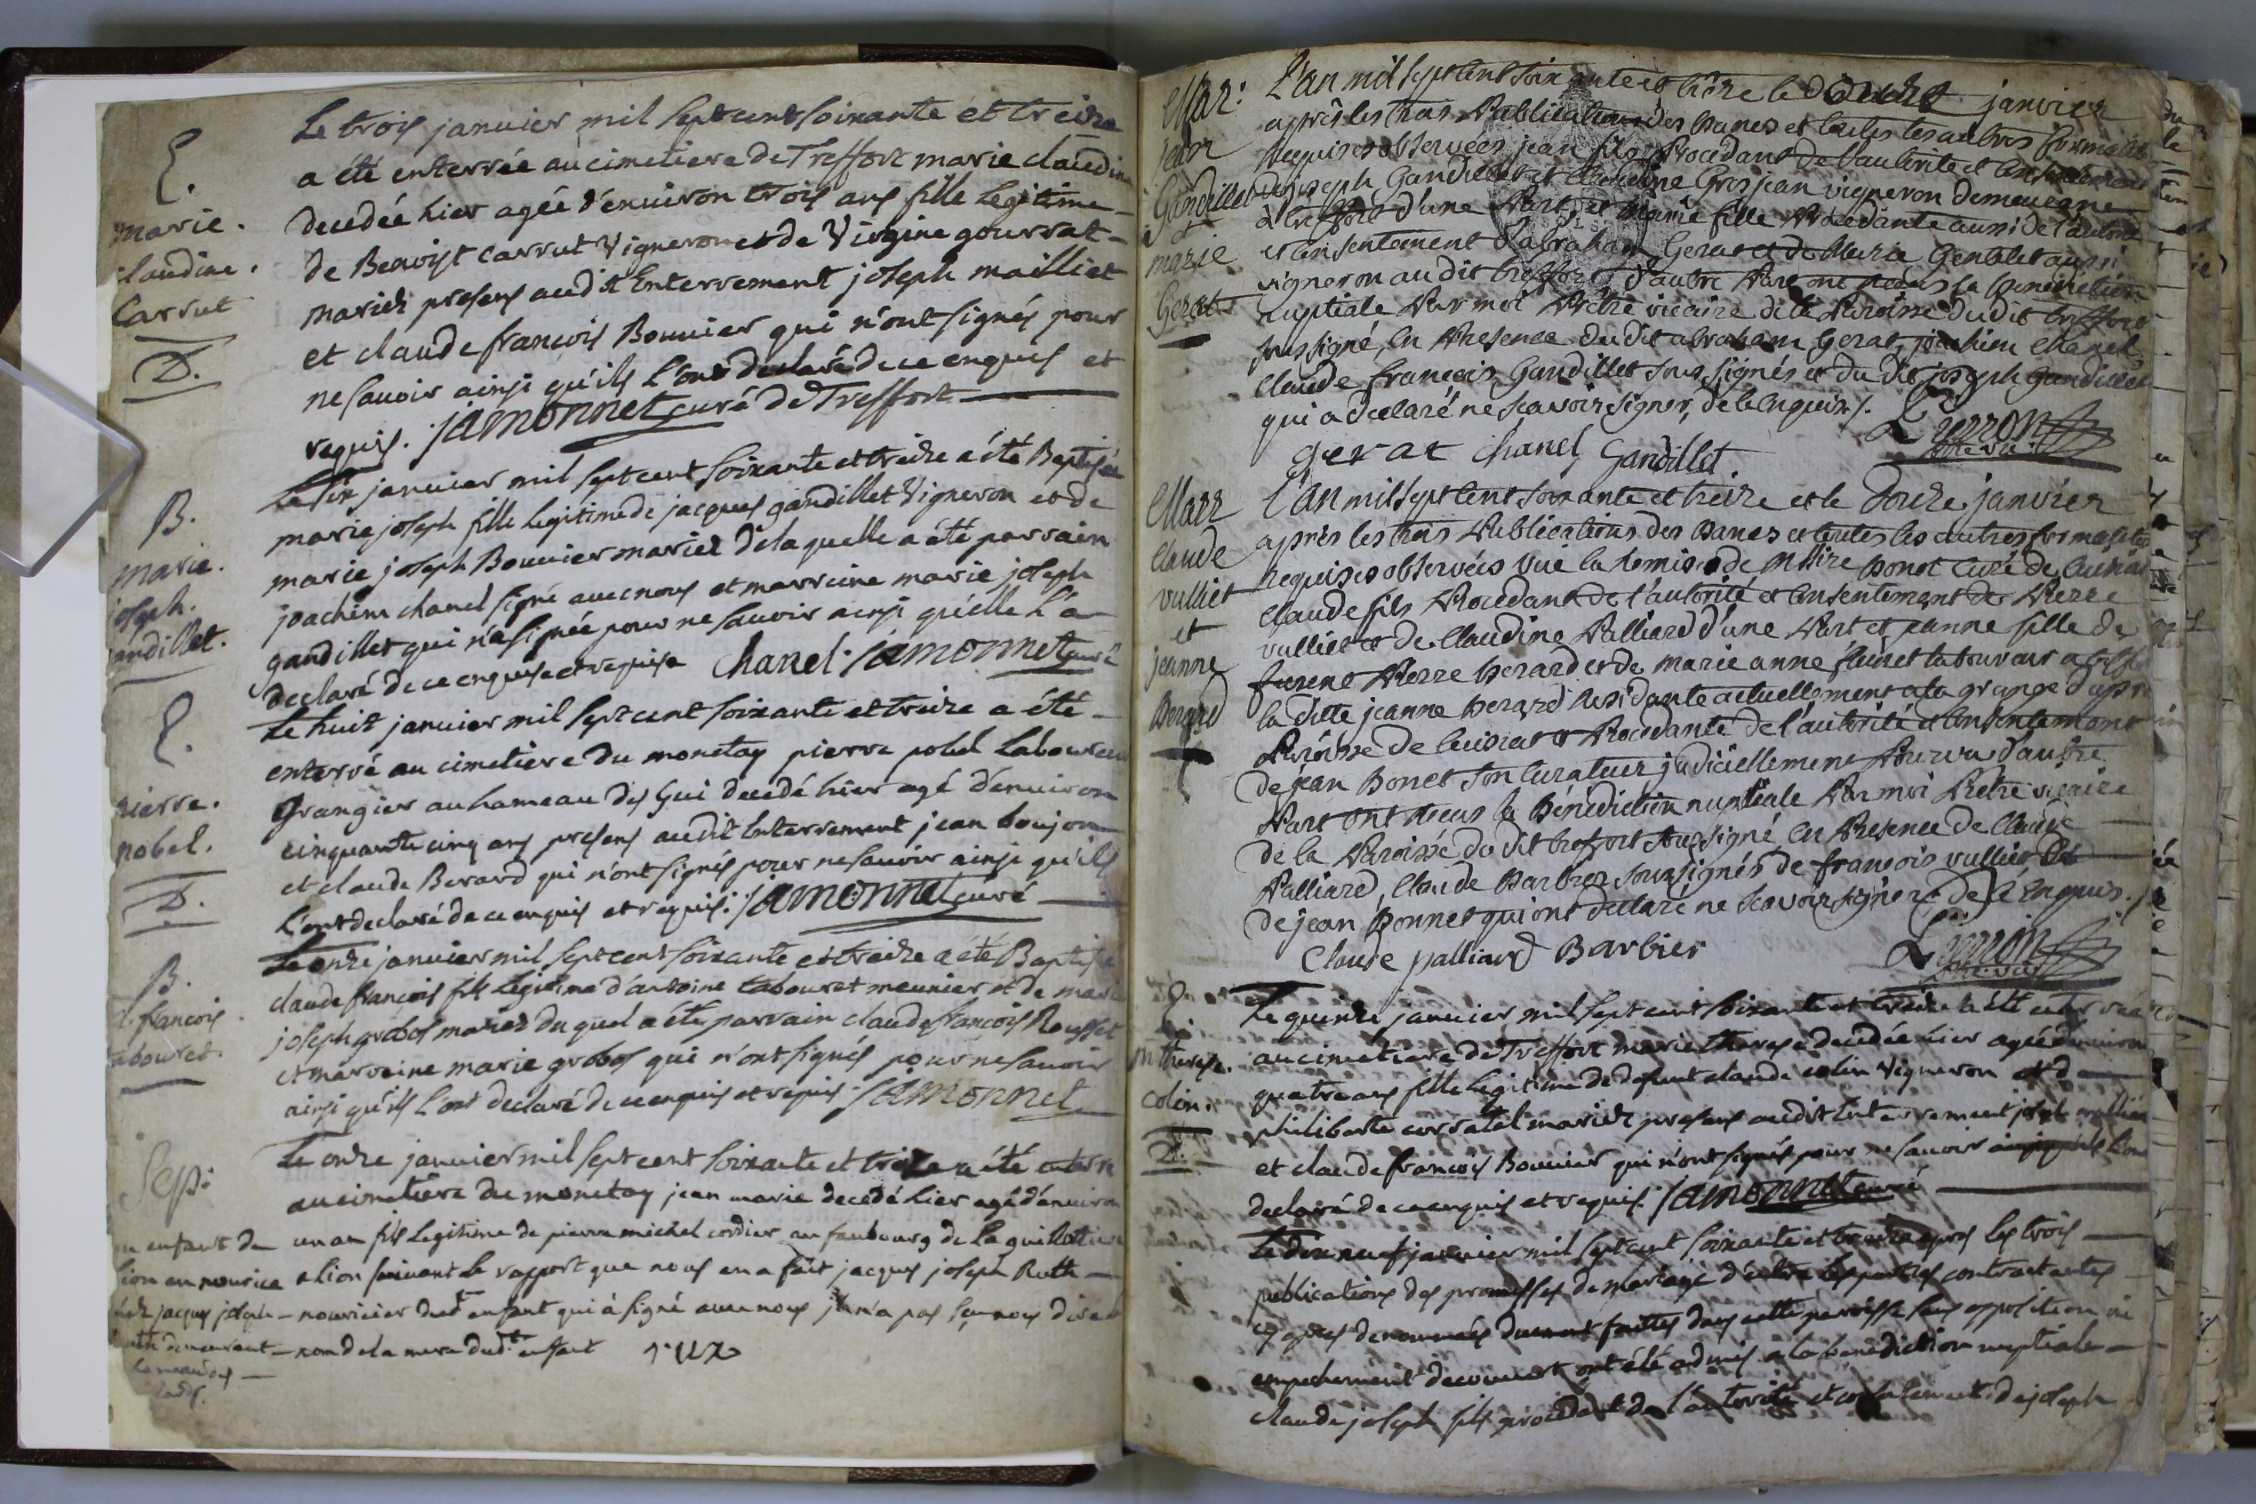 E.
marie.
claudine.
Carrut
D.
Le trois janvier mil sept cent soixante et treize
a été enterrée au cimetiere de Treffort marie claudine
decedée hier agée d'environ trois ans fille legitime
de Benoist carrut Vigneron et de Virgine gourrat
mariez presens audit Enterrement joseph mailliet
et claude francois Bouvier qui n'ont signés pour
ne savoir ainsi qu'ils l'ont declaré de ce enquis et
requis. jamonnet curé de Treffort
B.
marie.
joseph.
gandillet.
Le six janvier mil sept cent soixante et treize a été Baptisée
marie joseph fille legitime de jacques gandillet Vigneron et de
marie joseph Bouvier mariez de laquelle a été parrain
joachim chanel signé avec nous et marreine marie joseph
gandillet qui n'a signée pour ne savoir ainsi qu'elle l'a
declaré de ce enquise et requise Chanel jamonnet curé
E.
pierre.
pobel.
D.
Le huit janvier mil sept cent soixante et treize a été
enterré au cimetiere du monetay pierre pobel Laboureur
Grangier au hameau des Gui decedé hier agé d'environ
cinquante cinq ans presens audit Enterrement jean boujon
et claude Berard qui n'ont signés pour ne savoir ainsi qu'ils
l'ont declaré de ce enquis et requis. jamonnet curé
B.
cl. francois.
tabouret.
Le onze janvier mil sept cent soixante et treize a été Baptisé
claude francois fils legitime d'antoine tabouret meunier et de marie
joseph grobos mariez du quel a été parrain claude francois Rousset
et marreine marie grobos qui n'ont signés pour ne savoir
ainsi qu'ils l'ont declaré de ce enquis et requis jamonnet
Sep:
un enfant de
lion en nourice
chez jacques joseph
ruth demeurant
Le onze janvier mil sept cent soixante et treize a été enterré
au cimetiere du monetay jean marie decedé hier agé d'environ
un an fils legitime de pierre michel cordier au faubourg de la guillotiere
a lion suivant le rapport que nous en a fait jacques joseph Ruth
nourricier dudt enfant qui a signé avec nous il n'a pas sçu nous dire le
nom de la mere dudt enfant rux
Mar:
jean
Gandillet
et
marie
Gerat
L'an mil sept cent soixante et treize le douze janvier
après les trois Publications des banes et toutes les autres formalités
Requises observées jean fils Procedant de l'autorité et consentement
de joseph Gandillet et Claudine Grosjean vigneron demeurant
a treffort d'une Part, et Marie fille Procedante aussi de l'autorité
et consentement d'abraham Gerat et de Marie Gentelet aussi
vigneron audit treffort d'autre Part ont reçus la benediction
nuptiale Par moi Prêtre vicaire de la Paroisse du dit treffort
soussigné, en Presence du dit abraham Gerat, joachim chanel,
claude françois Gandillet sous signés et du dit joseph Gandillet
qui a declaré ne sçavoir signer, de ce enquis /.
gerat Chanel Gandillet.
Marz
Claude
vulliet
et
jeanne
Berard
L'an mil sept cent soixante et treize et le douze janvier
après les trois Publications des Banes et toutes les autres formalités
requises observées vue la remise de Mssire Bonet Curé de Cuisiat
Claude fils Procedant de l'autorité et consentement de Pierre
vulliet et de Claudine Palliard d'une Part et jeanne fille de
furent Pierre berard et de marie anne
la ditte jeanne berard Residante actuellement a la grange
Paroisse de Cuisiat et Procedante de l'autorité et consentement
de jean Bonet son curateur judiciellement Pourvu d'autre
Part ont reçus la Bénédiction nuptiale Par moi Prêtre vicaire
de la Paroisse du dit trefort soussigné, en Presence de Claude
Palliard, Claude Barbier soussignés de françois vulliet et
de jean Bonnet qui ont declaré ne sçavoir signer de ce Enquis /.
Claude palliard Barbier
E.
m therese.
colin.
D.
Le quinze janvier mil sept cent soixante et treize a été enterrée
au cimetiere de Treffort marie therese decedée hier agée d'environ
quatre ans fille legitime de defunt claude colin Vigneron et de
philiberte corratel mariez presens audit Enterrement joseph mailliet
et claude francois Bouvier qui n'ont signés pour ne savoir ainsi qu'ils l'ont
declaré de ce enquis et requis. jamonnet curé
Le dix neuf janvier mil sept cent soixante et treize après les trois
publications des promesses de mariage d'entre les parties contractantes
cy après denommées duement faittes dans cette paroisse sans opposition ni
empechement decouvert ont été admis a la bénédiction nuptiale
claude joseph fils procédant de l'autorité et consentement de joseph